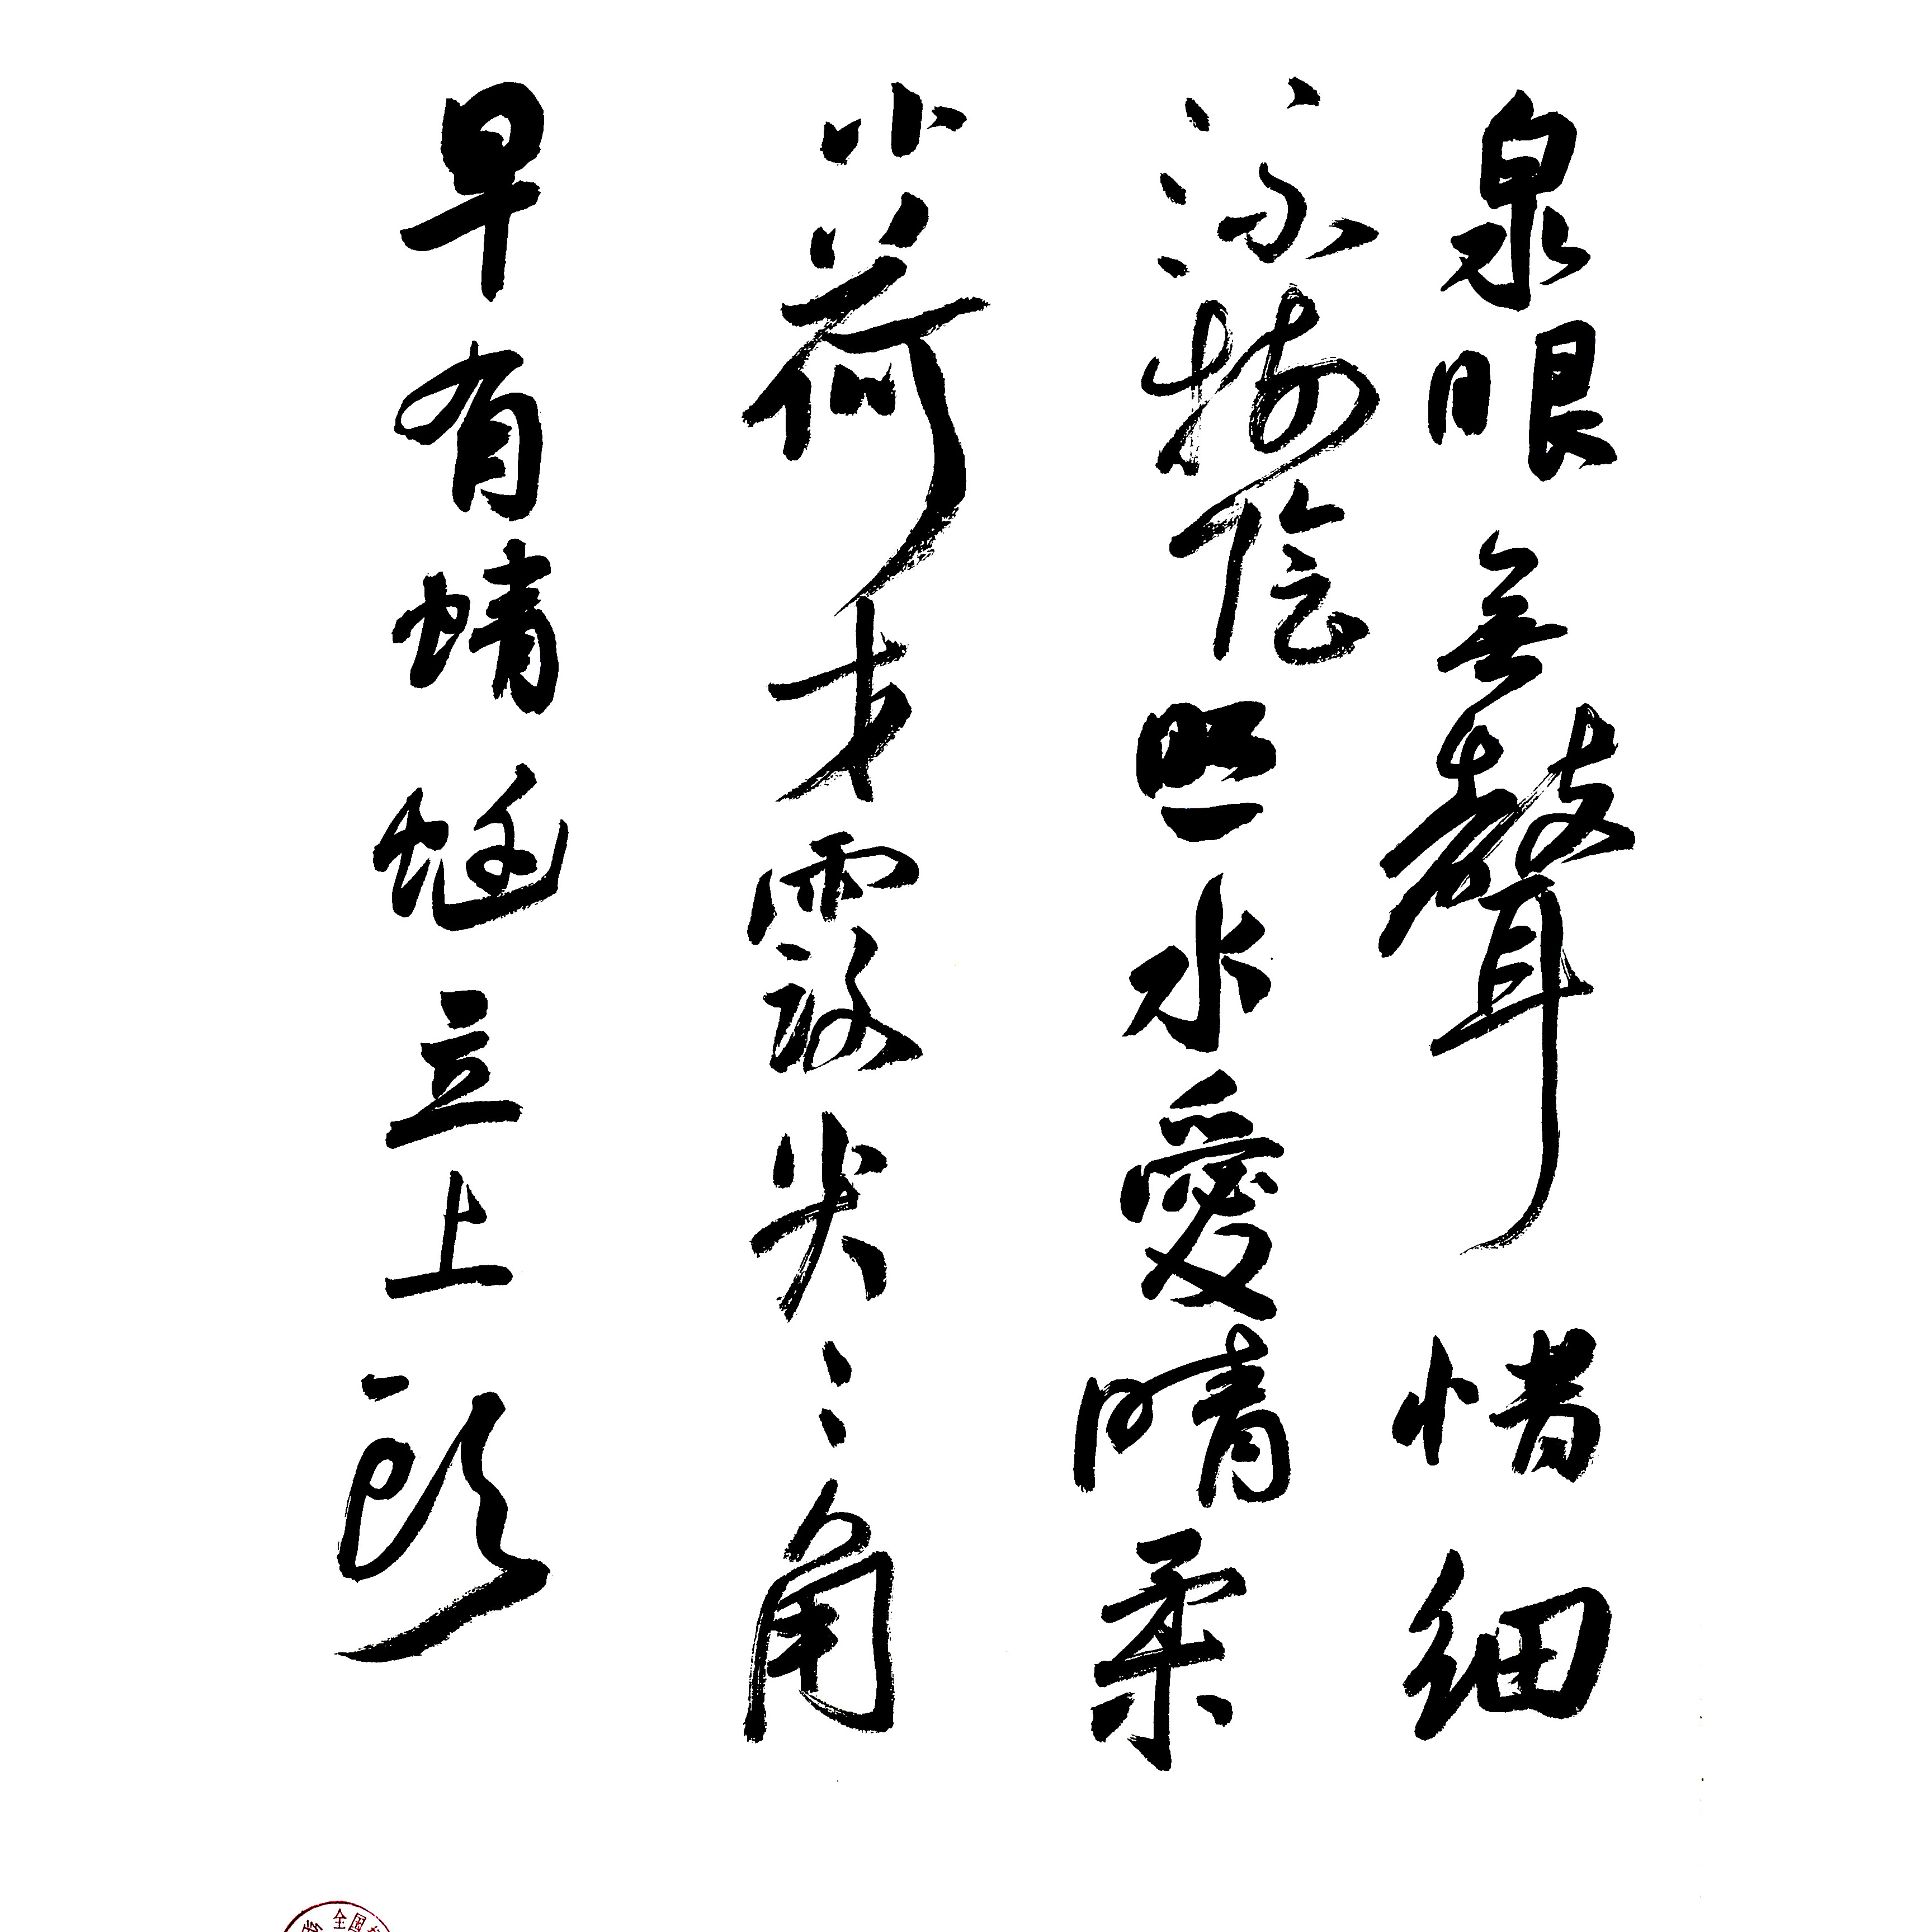 泉眼無聲惜細
流樹陰照水愛晴柔
小荷才露尖〻角
早有蜻蜓立上頭
全国